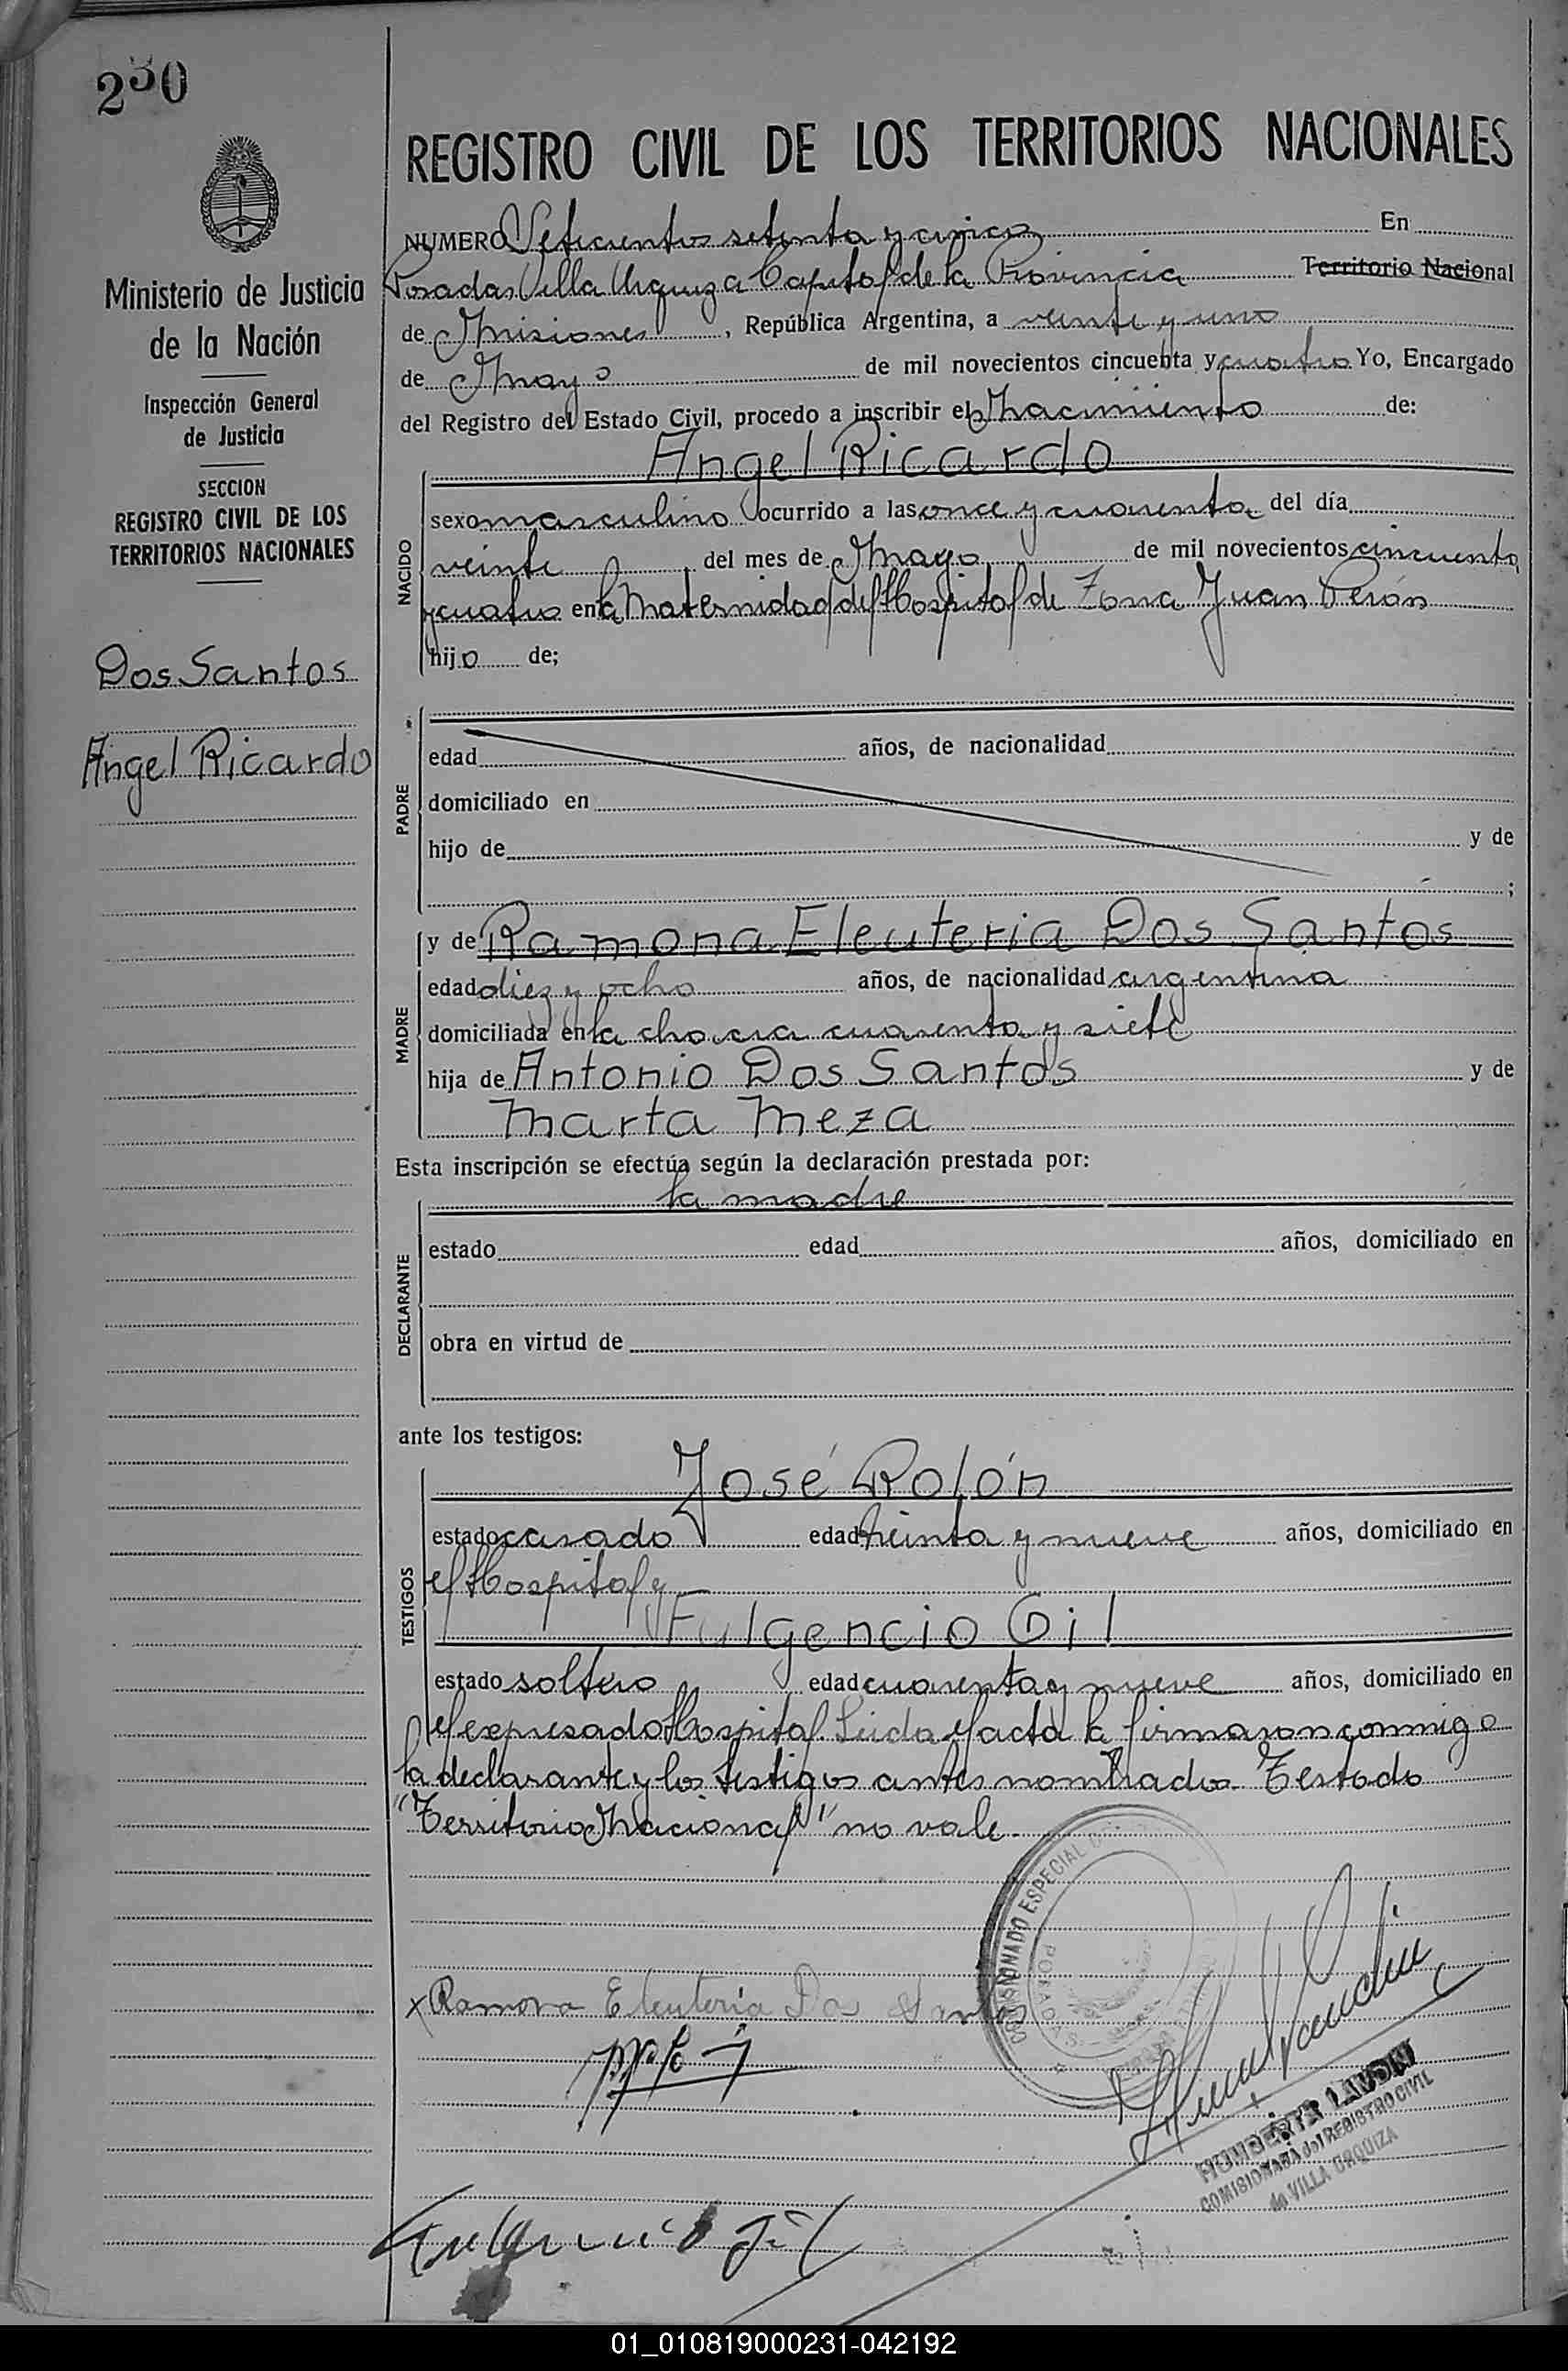 230
Ministerio de Justicia
de la Nación
Inspección General
de Justicia
SECCION
REGISTRO CIVIL DE LOS
TERRITORIOS NACIONALES
Dos Santos
Angel Ricardo
REGISTRO CIVIL DE LOS TERRITORIOS NACIONALES
NUMERO Seticientos setenta y cinco En
Posadas Villa Urquiza Capital de la Provincia Territorio Nacional
de Misiones, República Argentina, a veinte y uno
de Mayo de mil novecientos cincuenta y cuatro Yo, Encargado
del Registro del Estado Civil, procedo a inscribir el Nacimiento de:
Angel Ricardo
NACIDO
sexo masculino ocurrido a las once y cuarenta del día
veinte del mes de Mayo de mil novecientos cincuenta
y cuatro en la Maternidad del Hospital de Zona Juan Perón
hijo de;
PADRE
edad años, de nacionalidad
domiciliado en
hijo de y de
;
MADRE
y de Ramona Eleuteria Dos Santos
edad diez y ocho años, de nacionalidad argentina
domiciliada en la chacra cuarenta y siete
hija de Antonio Dos Santos y de
Marta Meza
Esta inscripción se efectúa según la declaración prestada por:
la madre
DECLARANTE
estado edad años, domiciliado en
obra en virtud de
ante los testigos:
TESTIGOS
José Rolón
estado casado edad treinta y nueve años, domiciliado en
el Hospital y
Fulgencio Gil
estado soltero edad cuarenta y nueve años, domiciliado en
el expresado Hospital. Leida el acta la firmaron conmigo
la declarante y los testigos antes nombrados. Testado
"Territorio Nacional" no vale.
COMISIONADO ESPECIAL
POSADAS
x Ramona Eleuteria Dos Santos
HUMBERTO LANDINI
COMISIONADA del REGISTRO CIVIL
de VILLA URQUIZA
Fulgencio Gil
01_010819000231-042192